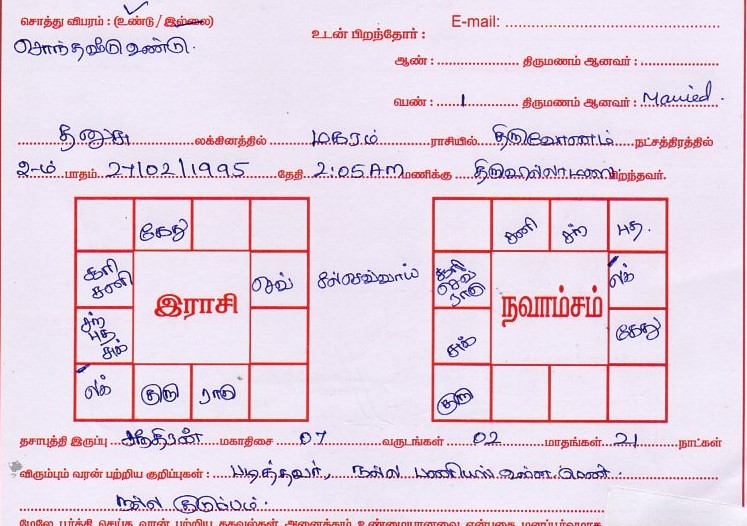 சொத்து விபரம் : (உண்டு / இல்லை)
E-mail: ..........
சொந்தவீடு உண்டு.
உடன் பிறந்தோர் :
ஆண் : .......... திருமணம் ஆனவர் : ..........
பெண் : 1 திருமணம் ஆனவர் : Married.
தனுசு லக்கினத்தில் மகரம் ராசியில் திருவோணம் நட்சத்திரத்தில்
2-ம் பாதம் 27/02/1995 தேதி 2:05 AM மணிக்கு பிறந்தவர்.
கேது
சனி சுக் பு.
சூரி சனி
செவ்
சுசெவ்வாய்
சூரி செவ் ராகு
லக்
இராசி
நவாம்சம்
சந் புத சுக்
சுக்
கேது
லக் குரு ராகு
குரு
தசாபுத்தி இருப்பு சந்திரன் மகாதிசை 07 வருடங்கள் 02 மாதங்கள் 21 நாட்கள்
விரும்பும் வரன் பற்றிய குறிப்புகள் : படித்தவர், நல்ல பணியில் உள்ள பெண்.
நல்ல குடும்பம்.
மேலே பூர்த்தி செய்த வரன் பற்றிய தகவல்கள் அனைத்தும் உண்மையானவை என்பதை மனப்பூர்வமாக